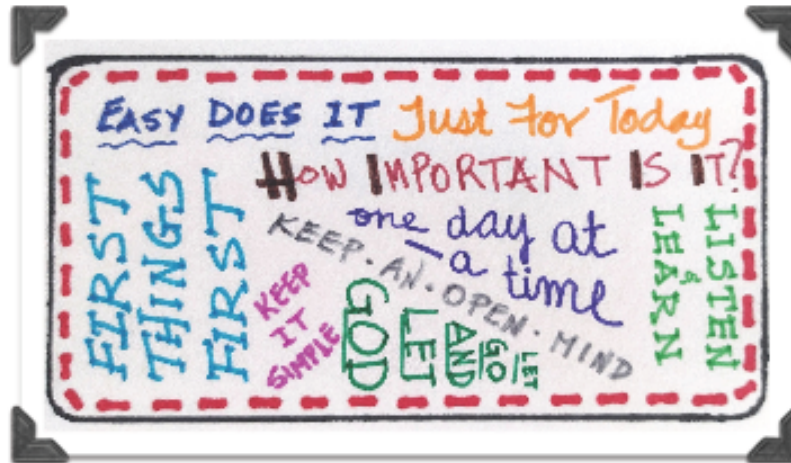 EASY DOES IT
Just For Today
HOW IMPORTANT IS IT?
FIRST
THINGS
FIRST
one day at
a time
KEEP·AN·OPEN·MIND
LISTEN
&
LEARN
KEEP
IT
SIMPLE
LET
GO
AND
LET
GOD